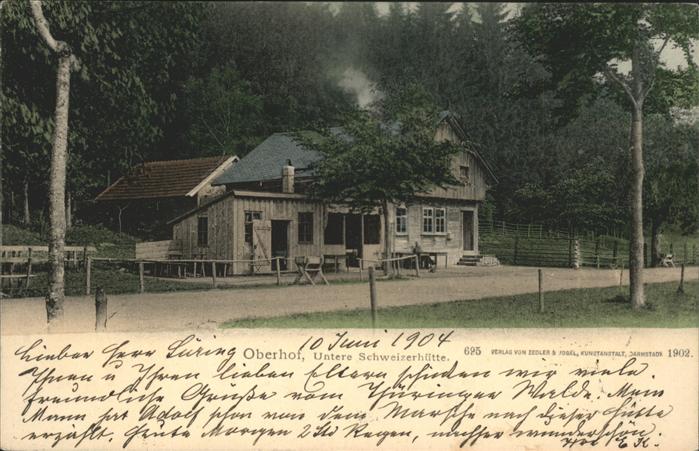 10 Juni 1904
Oberhof, Untere Schweizerhütte. 695 VERLAG VON ZEDLER & VOGEL, KUNSTANSTALT, DARMSTADT 1902.
Lieber Herr Süring
Ihnen u Ihren lieben Eltern schicken wir viele
freundliche Grüße vom Thüringer Walde. Mein
Mann hat Adolf schon von dem Marsche nach dieser Hütte
erzählt. Heute Morgen 2 Std Regen, nachher wunderschön.
E. K.